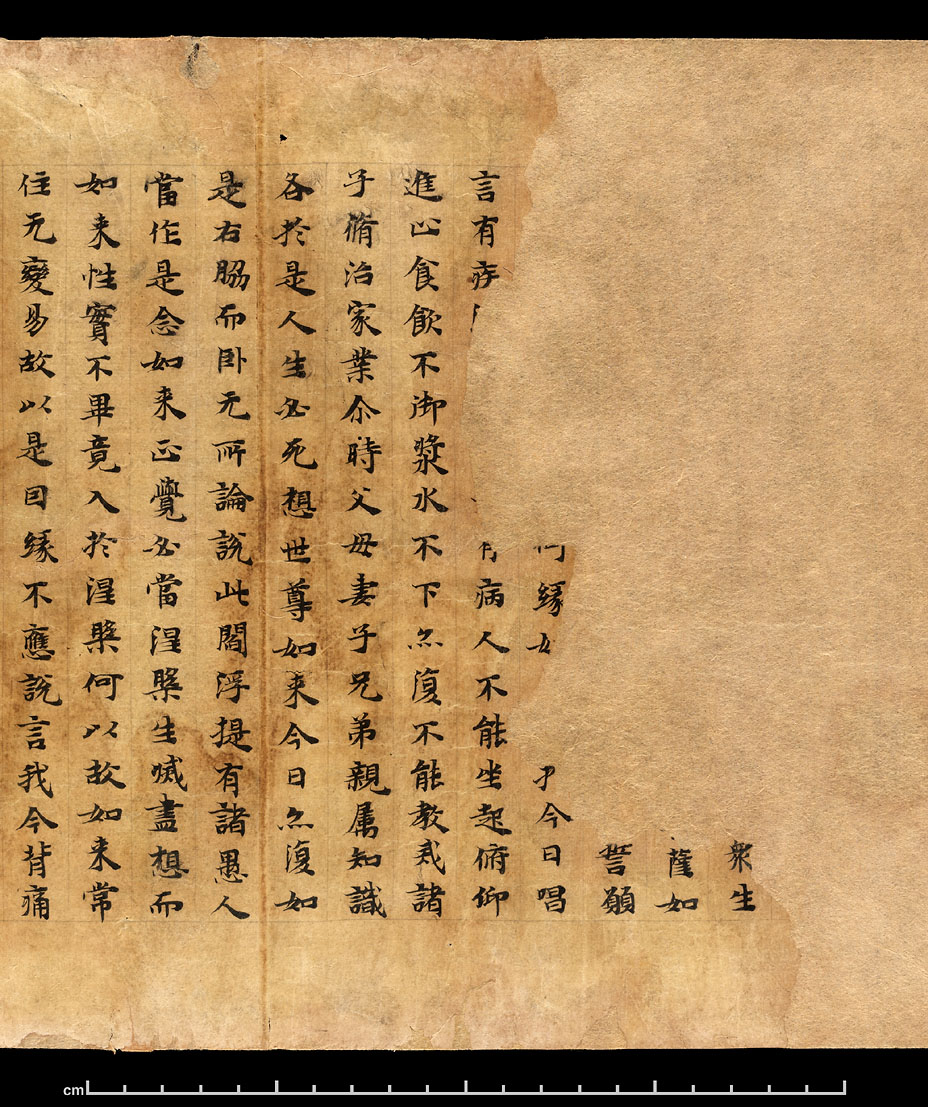 衆生
薩如
誓願
何縁如 于今日唱
言有病 有病人不能坐起俯仰
進止食飲不御漿水不下亦復不能教戒諸
子脩治家業尒時父母妻子兄弟親属知識
各於是人生必死想世尊如来今日亦復如
是右脇而卧无所論說此閻浮提有諸愚人
當作是念如来正覺必當涅槃生滅盡想而
如来性實不畢竟入於涅槃何以故如来常
住无變易故以是因縁不應說言我今背痛
cm